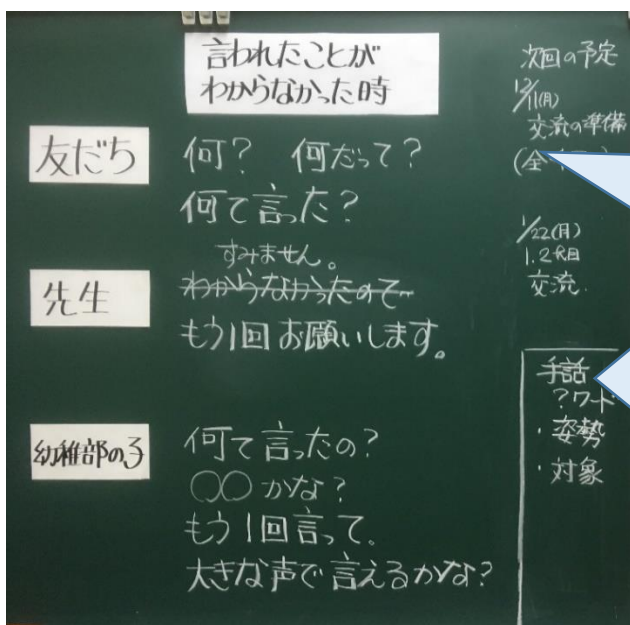 言われたことが
わからなかった時
友だち
何? 何だって?
何て言った?
先生
すみません。
わからなかったので
もう1回お願いします。
幼稚部の子
何て言ったの?
〇〇かな?
もう1回言って。
大きな声で言えるかな?
次回の予定
12/11(月)
交流の準備
(全
1/22(月)
1.2校目
交流.
手話
?ワード
・姿勢
・対象